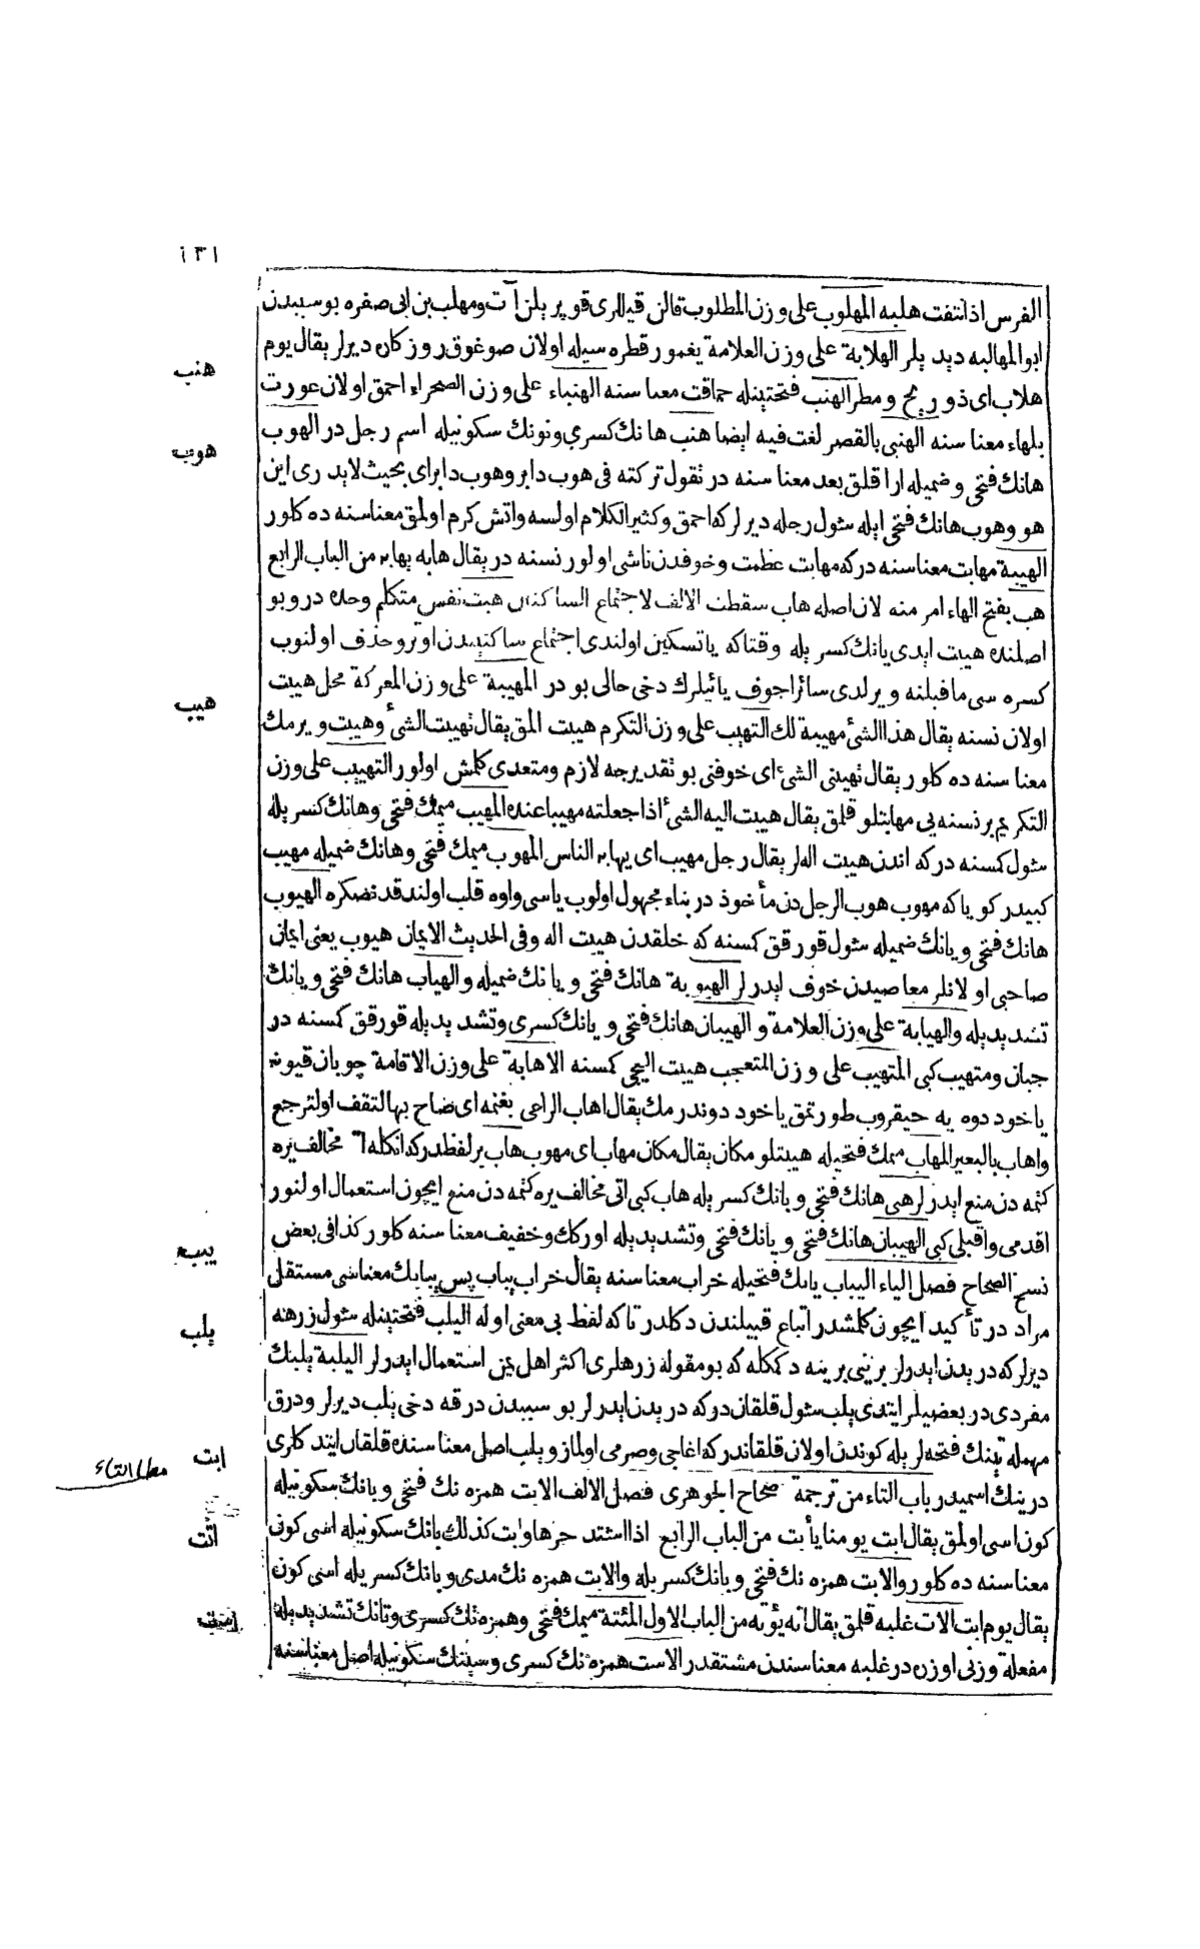 ١٣١
الفرس اذا نتفت هلبه المهلوب على وزن المطلوب قالن قيللرى قوپريلن آت ومهلب بن ابى صفره بو سببدن
ابو المهالبه ديديلر الهلابة على وزن العلامة يغمور قطره سيله اولان صوغوق روزكاره ديرلر يقال يوم
هلاب اى ذو ريح ومطر الهنب فتحتينله حماقت معناسنه الهنباء على وزن الصحراء احمق اولان عورت
هنب
بلهاء معناسنه الهنبى بالقصر لغت فيه ايضا هنب هانك كسرى ونونك سكونيله اسم رجل در الهوب
هوب
هانك فتحى وضميله ارا قلق بعد معناسنه در تقول تركته فى هوب دابر وهوب دابر اى بحيث لا يدرى اين
هو وهوب هانك فتحى ايله شول رجله ديرلر كه احمق وكثير الكلام اولسه واتش كرم اولمق معناسنه ده كلور
الهيبة مهابت معناسنه در كه مهابت عظمت وخوفدن ناشى اولور نسنه در يقال هابه يهابه من الباب الرابع
هب بفتح الهاء امر منه لان اصله هاب سقطت الالف لاجتماع الساكنين هبت نفس متكلم وحده در وبو
اصلنده هيبت ايدى يانك كسريله وقتاكه يا تسكين اولندى اجتماع ساكنيندن اوترو حذف اولنوب
كسره سى ما قبلنه ويرلدى سائر اجوف يائيلرك دخى حالى بو در المهيبة على وزن المعركة محل هيبت
هيب
اولان نسنه يقال هذا الشئ مهيبة لك التهيب على وزن التكرم هيبت المق يقال تهيبت الشئ وهيبت ويرمك
معناسنه ده كلور يقال تهيبنى الشئ اى خوفنى بو تقديرجه لازم ومتعدى كلمش اولور التهييب على وزن
التكريم بر نسنه يى مهابتلو قلق يقال هيبت اليه الشئ اذا جعلته مهيبا عنده المهيب ميمك فتحى وهانك كسريله
شول كسنه در كه اندن هيبت اله لر يقال رجل مهيب اى يهابه الناس المهوب ميمك فتحى وهانك ضميله مهيب
كبيدر كويا كه مهوب هوب الرجل دن مأخوذ در بناء مجهول اولوب ياسى واوه قلب اولندقدنصكره الهيوب
هانك فتحى ويانك ضميله شول قورقق كسنه كه خلقدن هيبت اله وفى الحديث الايمان هيوب يعنى ايمان
صاحبى اولانلر معاصيدن خوف ايدرلر الهيوبة هانك فتحى ويانك ضميله والهياب هانك فتحى ويانك
تشديديله والهيابة على وزن العلامة والهيبان هانك فتحى ويانك كسرى وتشديديله قورقق كسنه در
جبان ومتهيب كبى المتهيب على وزن المتعجب هيبت ايجى كسنه الاهابة على وزن الاقامة چوبان قيونه
ياخود دوه يه حيقروب طورتمق ياخود دوندرمك يقال اهاب الراعى بغنمه اى صاح بها لتقف او لترجع
واهاب بالبعير المهاب ميمك فتحيله هيبتلو مكان يقال مكان مهاب اى مهوب هاب بر لفظدر كه انكله ات مخالف يره
كتمه دن منع ايدرلر هبى هانك فتحى ويانك كسريله هاب كبى اتى مخالف يره كتمه دن منع ايچون استعمال اولنور
اقدمى واقبلى كبى الهيبان هانك فتحى ويانك فتحى وتشديديله اوركك وخفيف معناسنه كلور كذا فى بعض
يبب
نسخ الصحاح فصل الياء اليباب يانك فتحيله خراب معناسنه يقال خراب يباب پس يبابك معناسى مستقل
مراد در تأكيد ايچون كلمشدر اتباع قبيلندن دكلدر تا كه لفظ بى معنى اوله اليلب فتحتينله شول زرهنه
يلب
ديرلر كه دريدن ايدرلر بر ينى بر ينه دكمكله كه بو مقوله زرهلرى اكثر اهل يمن استعمال ايدرلر اليلبة يلبنك
مفردى در بعضيلر ايتدى يلب شول قلقان در كه دريدن ايدرلر بو سببدن درقه دخى يلب ديرلر ودرق
مهمله تينك فتحه لريله كوندن اولان قلقاندر كه اغاجى وصرمى اولماز ويلب اصل معناسنده قلقان ايتدكلرى
ابت
درينك اسميدر باب التاء من ترجمة صحاح الجوهرى فصل الالف الابت همزه نك فتحى وبانك سكونيله
مطلب التاء
كون اسى اولمق يقال ابت يومنا يأبت من الباب الرابع اذا اشتد حرها وابت كذلك بانك سكونيله اسى كونى
اتت
معناسنه ده كلور والابت همزه نك فتحى وبانك كسريله والابت همزه نك مدى وبانك كسريله اسى كون
يقال يوم ابت الات غلبه قلمق يقال اته يؤته من الباب الاول المئتة ميمك فتحى وهمزه نك كسرى وتانك تشديديله
است
مفعلة وزنى اوزره در غلبه معناسندن مشتقدر الاست همزه نك كسرى وسينك سكونيله اصل معناسنه